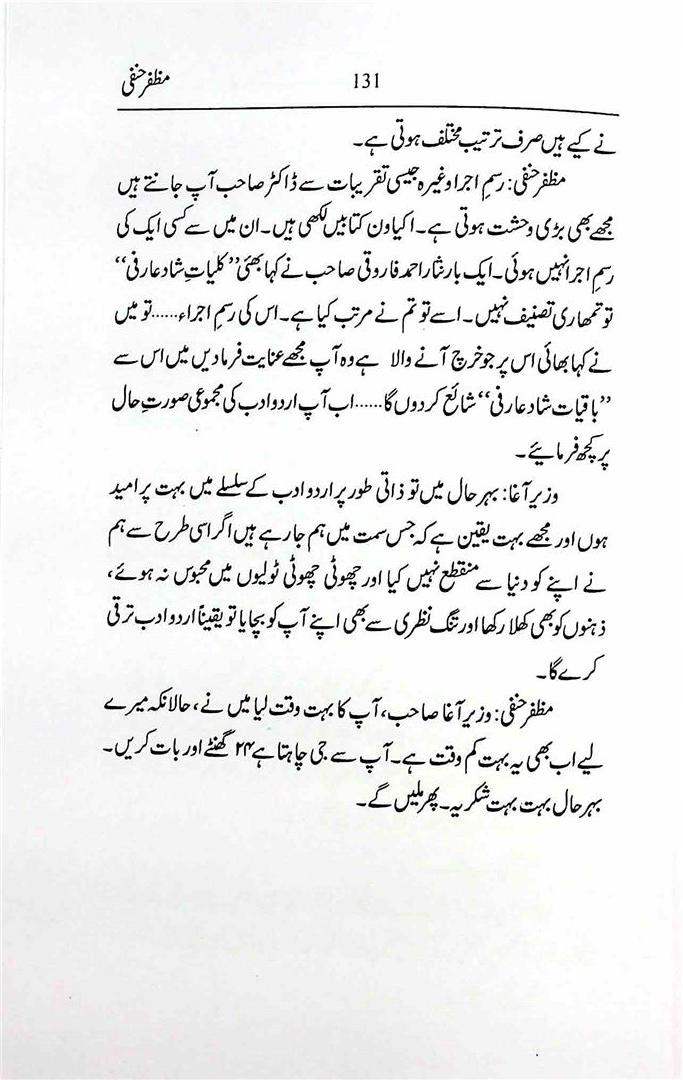 مظفر حنفی 131
نے کیے ہیں صرف ترتیب مختلف ہوتی ہے۔
مظفر حنفی: رسمِ اجرا وغیرہ جیسی تقریبات سے ڈاکٹر صاحب آپ جانتے ہیں
مجھے بھی بڑی وحشت ہوتی ہے۔ اکیاون کتابیں لکھی ہیں۔ ان میں سے کسی ایک کی
رسمِ اجرا نہیں ہوئی۔ ایک بار نثار احمد فاروقی صاحب نے کہا بھئی ”کلیات شاد عارفی“
تو تمھاری تصنیف نہیں۔ اسے تو تم نے مرتب کیا ہے۔ اس کی رسم اجراء...... تو میں
نے کہا بھائی اس پر جو خرچ آنے والا ہے وہ آپ مجھے عنایت فرما دیں میں اس سے
”باقیات شاد عارفی“ شائع کر دوں گا...... اب آپ اردو ادب کی مجموعی صورتِ حال
پر کچھ فرمائیے۔
وزیر آغا: بہر حال میں تو ذاتی طور پر اردو ادب کے سلسلے میں بہت پر امید
ہوں اور مجھے بہت یقین ہے کہ جس سمت میں ہم جا رہے ہیں اگر اسی طرح سے ہم
نے اپنے کو دنیا سے منقطع نہیں کیا اور چھوٹی چھوٹی ٹولیوں میں محبوس نہ ہوئے،
ذہنوں کو بھی کھلا رکھا اور تنگ نظری سے بھی اپنے آپ کو بچایا تو یقیناً اردو ادب ترقی
کرے گا۔
مظفر حنفی: وزیر آغا صاحب، آپ کا بہت وقت لیا میں نے، حالانکہ میرے
لیے اب بھی یہ بہت کم وقت ہے۔ آپ سے جی چاہتا ہے ۲۴ گھنٹے اور بات کریں۔
بہر حال بہت بہت شکریہ۔ پھر ملیں گے۔